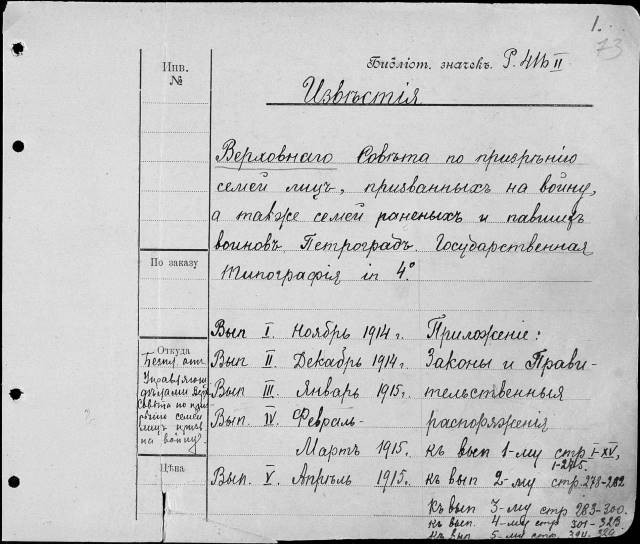 1.
73
Инв.
№
Библіот. значекъ. Р. 41b II
Извѣстія
Верховнаго Совѣта по призрѣнію
семей лицъ, призванныхъ на войну,
а также семей раненыхъ и павшихъ
воиновъ. Петроградъ. Государственная
Типографія in 4°.
По заказу
Вып I. Ноябрь 1914 г. Приложеніе:
Вып II. Декабрь 1914 г. Законы и Прави-
Вып III. Январь 1915 г. тельственныя
Вып IV. Февраль- распоряженія
Мартъ 1915. къ вып 1-му стр I-XV,
1-275.
Вып. V. Апрѣль 1915. къ вып 2-му стр. 273-282
къ вып 3-му стр 283-300.
къ вып. 4-му стр 301-323
къ вып 5-му стр
Откуда
Безпл. отъ
Управляющ
дѣлами Вер
Совѣта по приз
рѣнію семей
лицъ призв
на войну
Цѣна